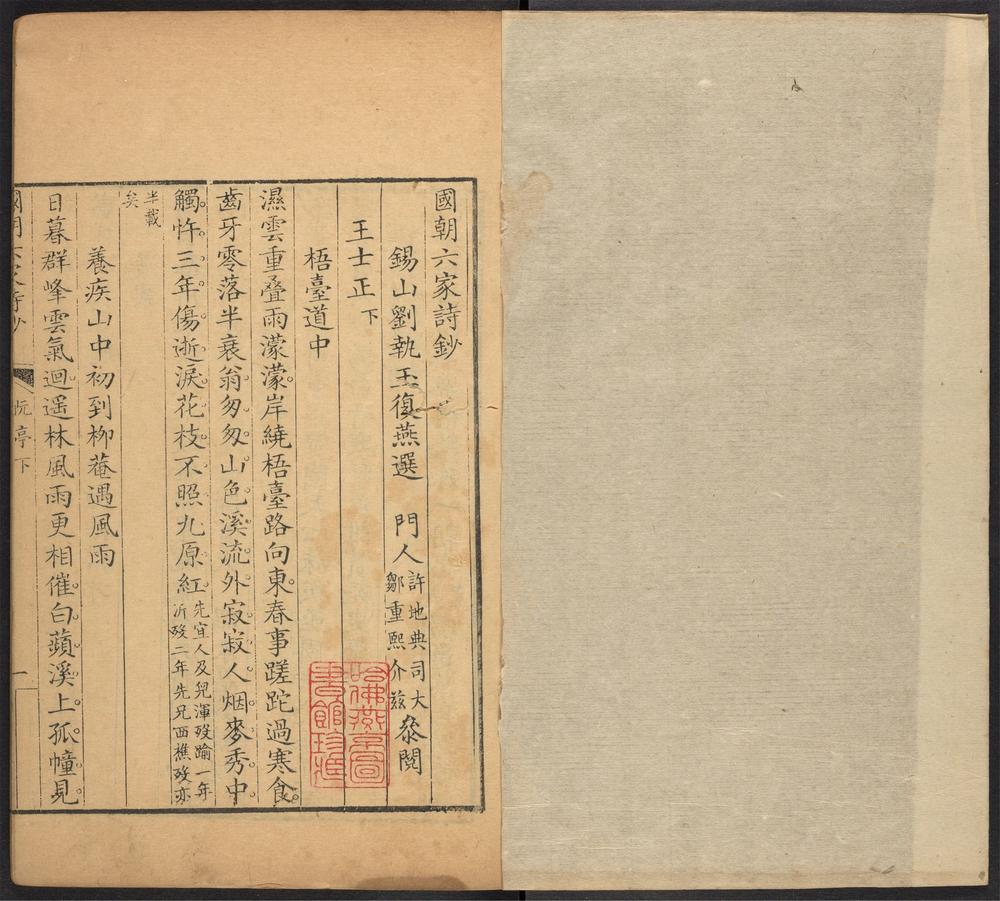 國朝六家詩鈔
錫山劉執玉復燕選 門人許地典司大鄒重熙介茲叅閱
王士正下
梧臺道中
濕雲重疊雨濛濛岸繞梧臺路向東春事蹉跎過寒食
齒牙零落半衰翁匆匆山色溪流外寂寂人烟麥秀中
觸忤三年傷逝淚花枝不照九原紅先宜人及兒渾歿踰一年沂歿二年先兄西樵歿亦
半載矣
養疾山中初到柳菴遇風雨
日暮群峰雲氣迴遥林風雨更相催白蘋溪上孤幢見
國朝六家詩鈔 阮亭下 一
哈佛燕京圖書館珍藏